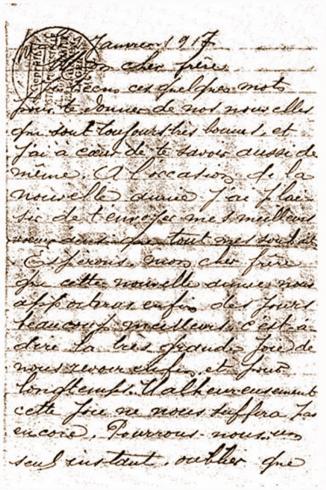 Janvier 1917
Mon cher frère
ces quelques mots
pour te donner de nos nouvelles
qui sont toujours très bonnes et
j'ai à cœur de te savoir aussi de
même. A l'occasion de la
nouvelle année j'ai plai
sir de t'envoyer mes meilleurs
tout mes souhaits
Espérons, mon cher frère
que cette nouvelle année nous
apportera enfin des jours
beaucoup meilleurs, c'est-à
dire la très grande joie de
nous revoir enfin, et pour
longtemps. Malheureusement
cette joie ne nous suffira pas
encore. Pourrons-nous un
seul instant, oublier que